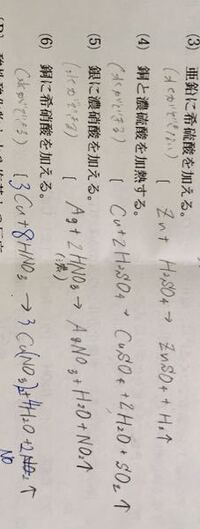 (3) 亜鉛に希硫酸を加える。
Zn + H₂SO₄ → ZnSO₄ + H₂↑
(4) 銅と濃硫酸を加熱する。
Cu + 2H₂SO₄ → CuSO₄ + 2H₂O + SO₂↑
(5) 銀に濃硝酸を加える。
Ag + 2HNO₃ → AgNO₃ + H₂O + NO₂↑
(濃)
(6) 銅に希硝酸を加える。
3Cu + 8HNO₃ → 3Cu(NO₃)₂ + 4H₂O + 2
NO
↑